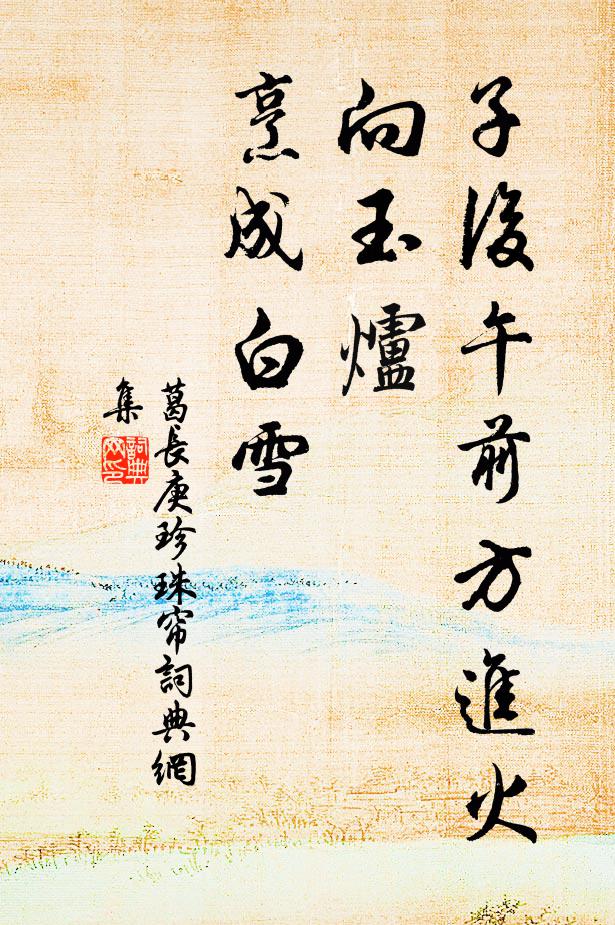 子後午前方進火
向玉爐
烹成白雪
葛長庚珍珠帘詞典網
集
詞典
網印